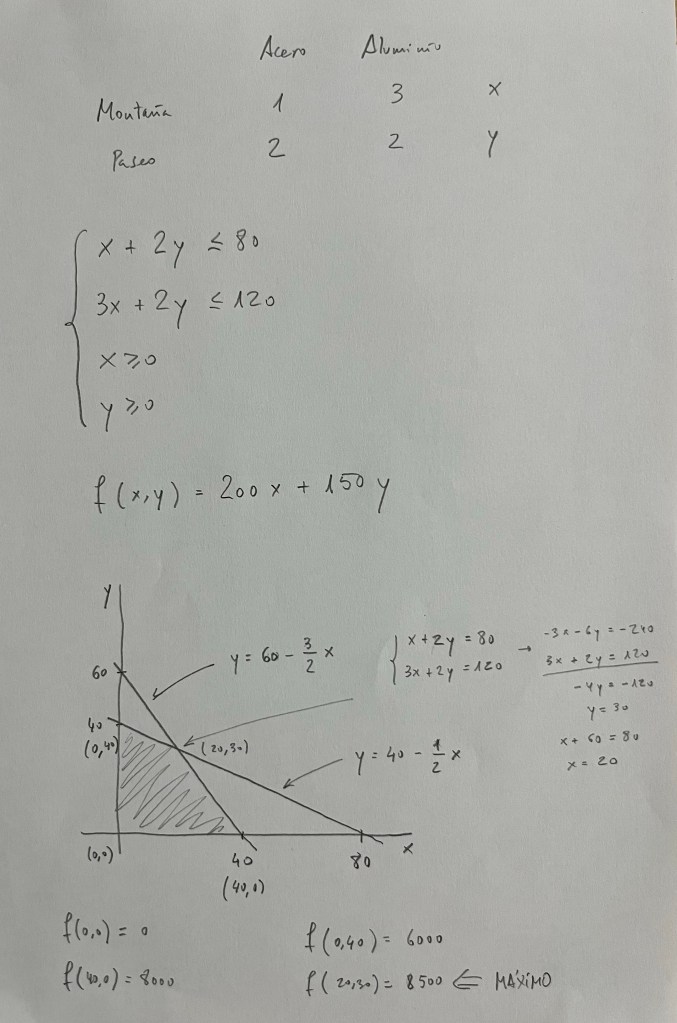 Acero Aluminio
Montaña 1 3 x
Paseo 2 2 y
x + 2y ≤ 80
3x + 2y ≤ 120
x ≥ 0
y ≥ 0
f(x,y) = 200x + 150y
y
60
40
(0,40)
(0,0)
y = 60 - 3/2 x
(20,30)
y = 40 - 1/2 x
40
(40,0)
80
x
x + 2y = 80
3x + 2y = 120
→
-3x - 6y = -240
3x + 2y = 120
-4y = -120
y = 30
x + 60 = 80
x = 20
f(0,0) = 0
f(0,40) = 6000
f(40,0) = 8000
f(20,30) = 8500 ⇐ MÁXIMO